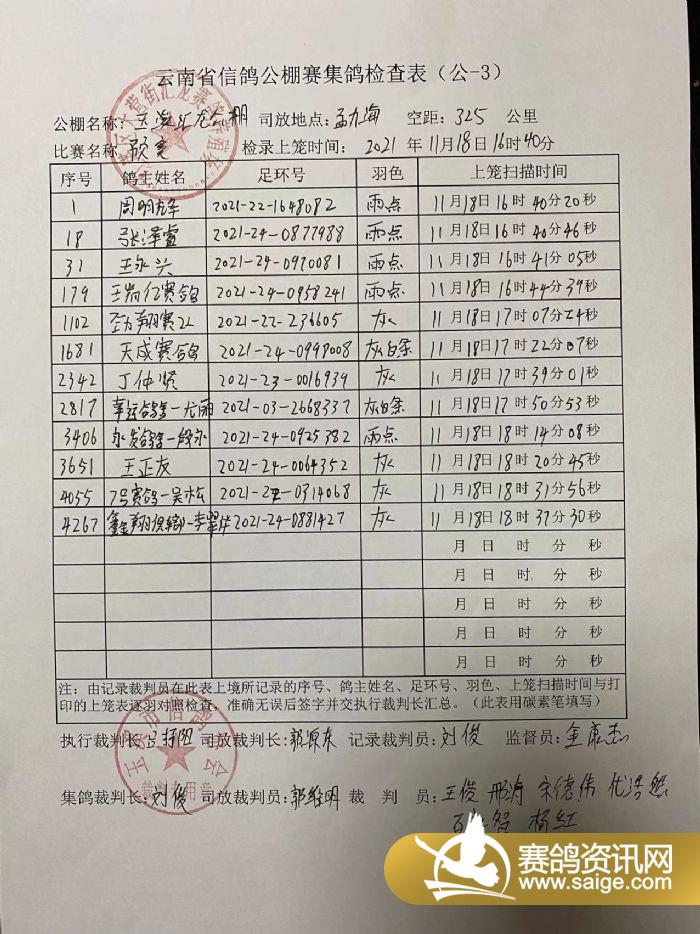 云南省信鸽公棚赛集鸽检查表（公-3）
公棚名称：玉溪汇龙公棚 司放地点：孟力海 空距：325 公里
比赛名称：预赛 检录上笼时间：2021 年 11月18日16时40分
序号 鸽主姓名 足环号 羽色 上笼扫描时间
1 周明锋 2021-22-1648082 雨点 11月18日16时40分20秒
18 张泽睿 2021-24-0877988 雨点 11月18日16时40分46秒
31 王永兴 2021-24-0970081 雨点 11月18日16时41分05秒
179 赛鸽 2021-24-0958241 雨点 11月18日16时44分39秒
1102 劲翔赛 2021-22-236605 灰 11月18日17时07分24秒
1681 天成赛鸽 2021-24-0998008 灰白条 11月18日17时22分07秒
2342 丁仲贤 2021-23-0016939 灰 11月18日17时39分01秒
2817 幸运鸽舍-尤丽 2021-03-2668337 灰白条 11月18日17时50分53秒
3406 永发鸽舍-段永 2021-24-0925382 雨点 11月18日18时14分08秒
3651 王正友 2021-24-0064352 灰 11月18日18时20分45秒
4055 7号赛鸽-吴松 2021-22-0314068 灰 11月18日18时31分56秒
4267 鑫翔 2021-24-0881427 灰 11月18日18时37分30秒
月 日 时 分 秒
月 日 时 分 秒
月 日 时 分 秒
月 日 时 分 秒
月 日 时 分 秒
注：由记录裁判员在此表上境所记录的序号、鸽主姓名、足环号、羽色、上笼扫描时间与打
印的上笼表逐羽对照检查，准确无误后签字并交执行裁判长汇总。（此表用碳素笔填写）
执行裁判长 司放裁判长：郭原东 记录裁判员：刘俊 监督员：金康
玉溪市信鸽协会
裁判专用章
集鸽裁判长：刘俊 司放裁判员：郭维明 裁 判 员：王俊 邢涛 宋德伟 尤浩然
智 杨红
赛鸽资讯网
www.saige.com